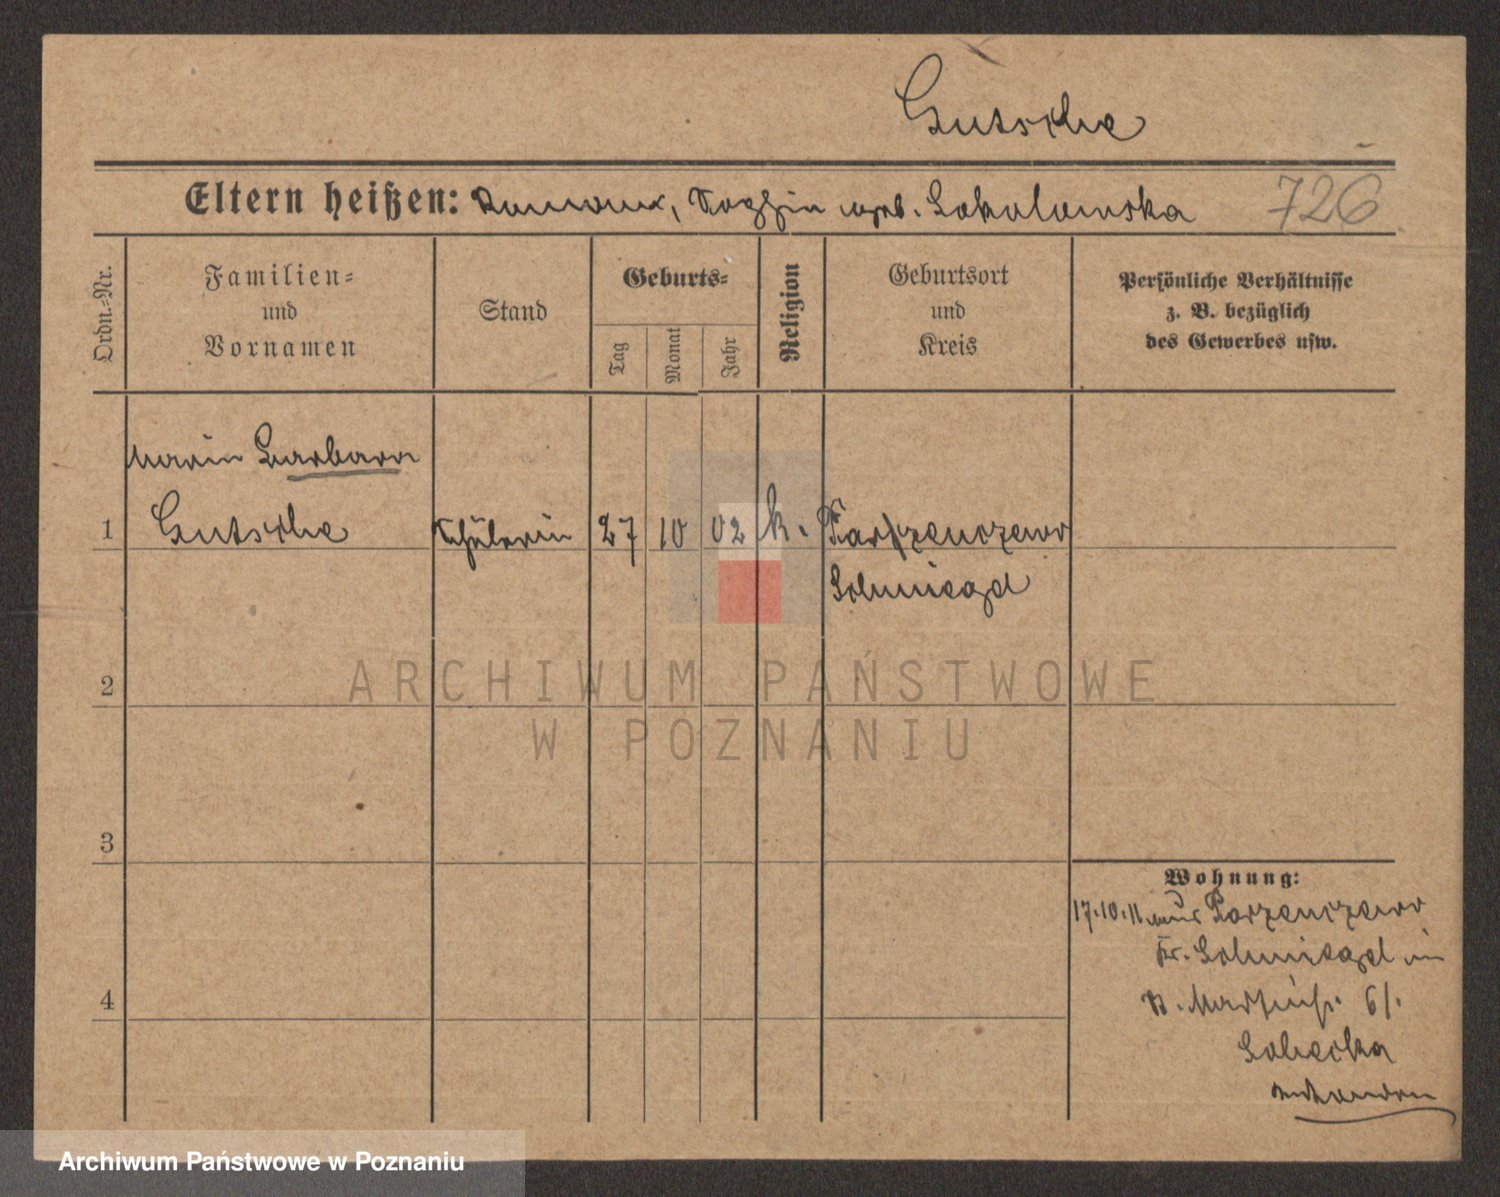 Gutsche
Eltern heißen: Roman, Sophia geb. Sokolowska 726
Ordn.-Nr.
Familien-
und
Vornamen
Stand
Geburts-
Tag
Monat
Jahr
Religion
Geburtsort
und
Kreis
Persönliche Verhältnisse
z. B. bezüglich
des Gewerbes usw.
Maria Barbara
1 Gutsche Schülerin 27 10 02 k. Parzenczewo
Schmiegel
2
ARCHIWUM PAŃSTWOWE
W POZNANIU
3
Wohnung:
17.10.11 aus Parzenczewo
Kr. Schmiegel in
St. Martinstr. 61.
4
Archiwum Państwowe w Poznaniu